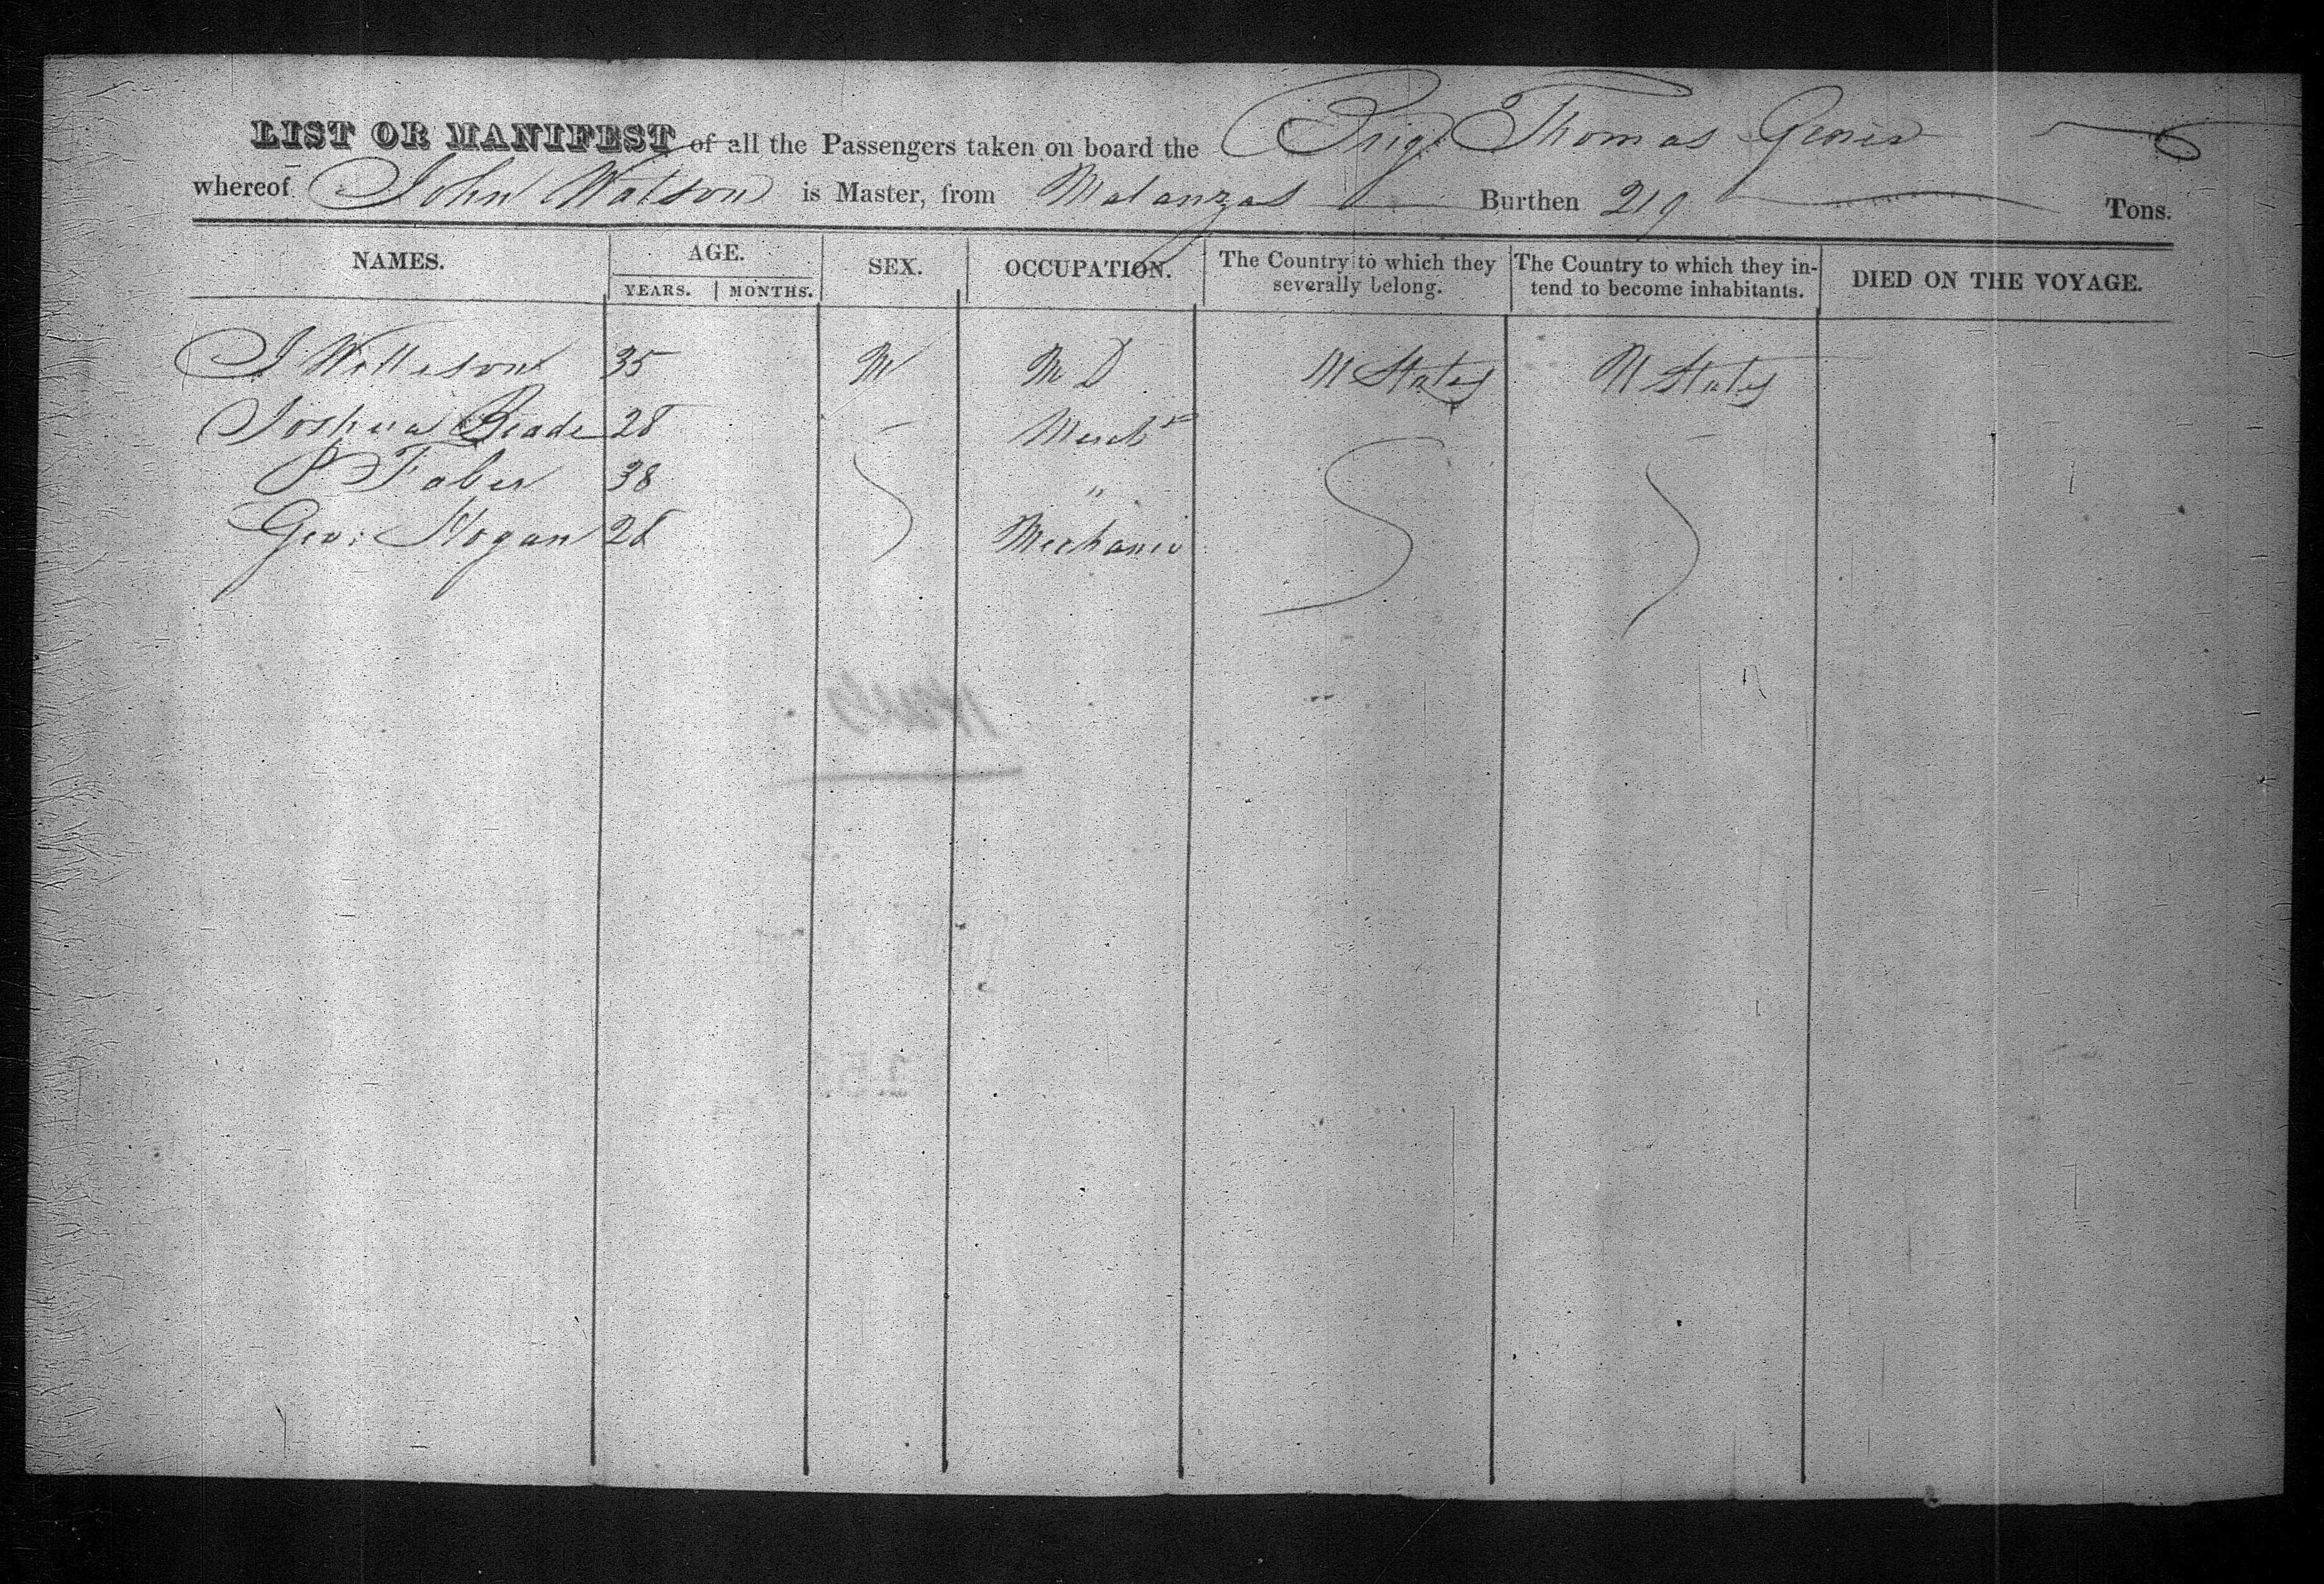 LIST OR MANIFEST of all the Passengers taken on board the Brig Thomas
whereof John Watson is Master, from Matanzas Burthen 219 Tons.
NAMES. AGE. SEX. OCCUPATION. The Country to which they severally belong. The Country to which they intend to become inhabitants. DIED ON THE VOYAGE.
YEARS. MONTHS.
J 35 M M D U States U States
Joshua 28 Mercht
P Faber 38 "
Geo: Hogan 28 Mechanic